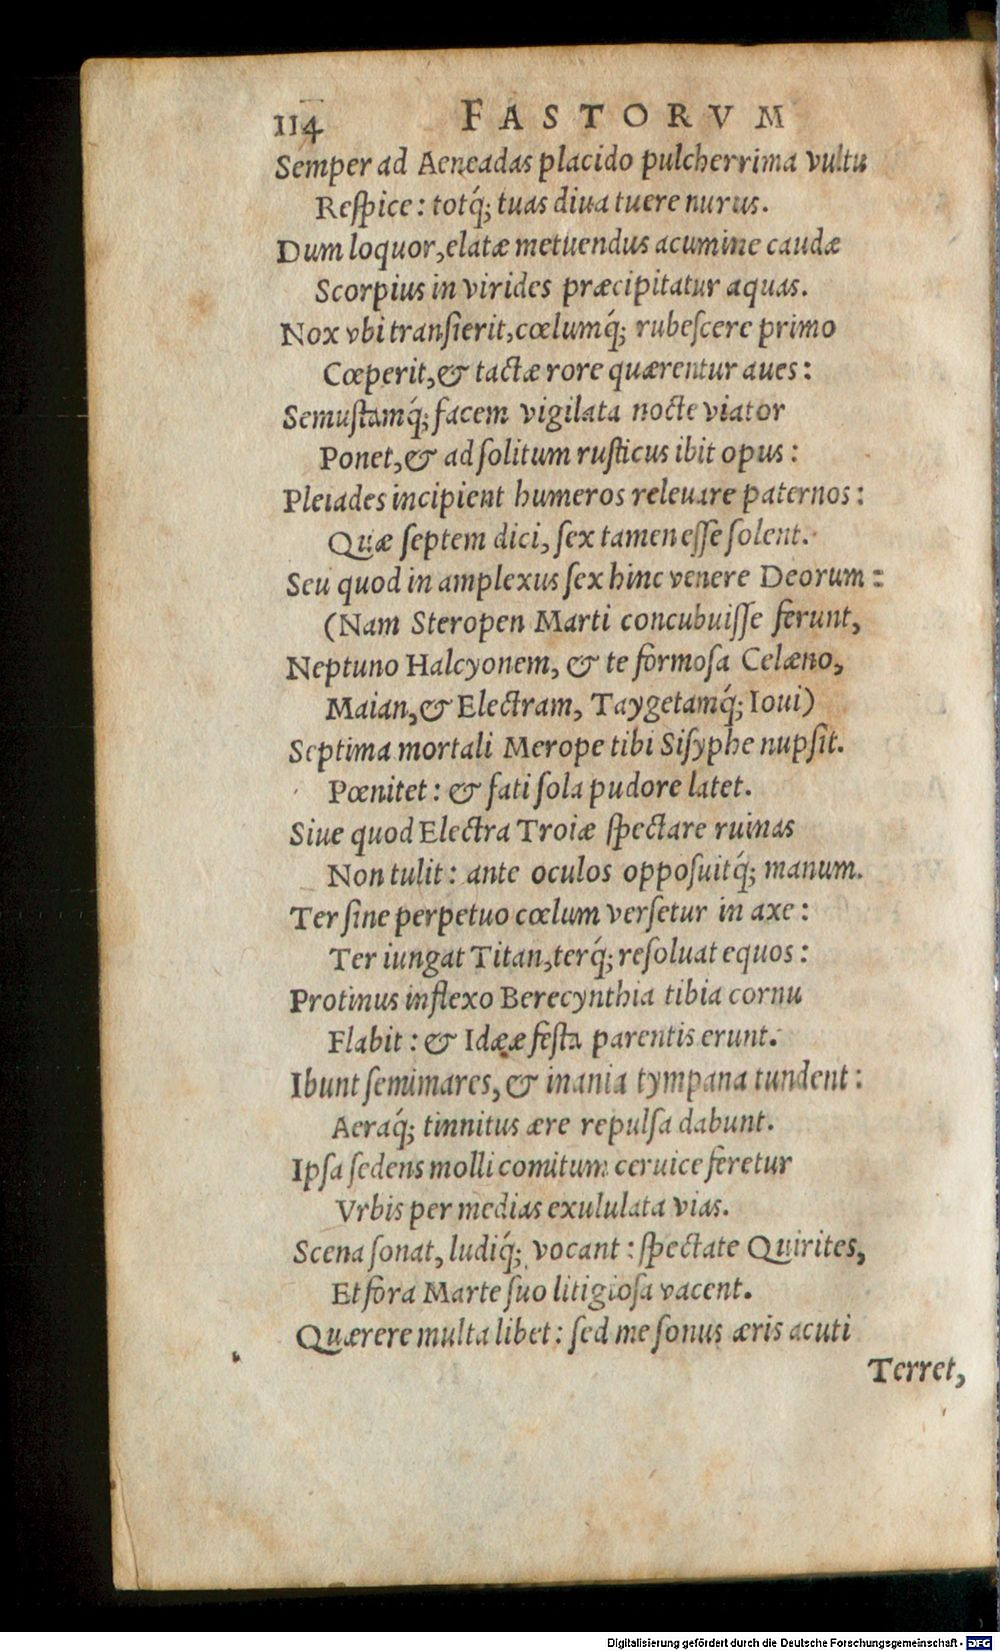 114 FASTORVM
Semper ad Aeneadas placido pulcherrima vultu
Reſpice: totq́; tuas diua tuere nurus.
Dum loquor, elatæ metuendus acumine caudæ
Scorpius in virides præcipitatur aquas.
Nox vbi tranſierit, cœlumq́; rubeſcere primo
Cœperit, & tactæ rore quærentur aues:
Semuſtamq́; facem vigilata nocte viator
Ponet, & ad ſolitum ruſticus ibit opus:
Pleiades incipient humeros releuare paternos:
Quæ ſeptem dici, ſex tamen eſſe ſolent.
Seu quod in amplexus ſex hinc venere Deorum:
(Nam Steropen Marti concubuiſſe ferunt,
Neptuno Halcyonem, & te formoſa Celæno,
Maian, & Electram, Taygetamq́; Ioui)
Septima mortali Merope tibi Siſyphe nupſit.
Pœnitet: & fati ſola pudore latet.
Siue quod Electra Troiæ ſpectare ruinas
Non tulit: ante oculos oppoſuitq́; manum.
Ter ſine perpetuo cœlum verſetur in axe:
Ter iungat Titan, terq́; reſoluat equos:
Protinus inflexo Berecynthia tibia cornu
Flabit: & Idææ feſta parentis erunt.
Ibunt ſemimares, & inania tympana tundent:
Aeraq́; tinnitus ære repulſa dabunt.
Ipſa ſedens molli comitum ceruice feretur
Vrbis per medias exululata vias.
Scena ſonat, ludiq́; vocant: ſpectate Quirites,
Et fora Marte ſuo litigioſa vacent.
Quærere multa libet: ſed me ſonus æris acuti
Terret,
Digitalisierung gefördert durch die Deutsche Forschungsgemeinschaft - DFG